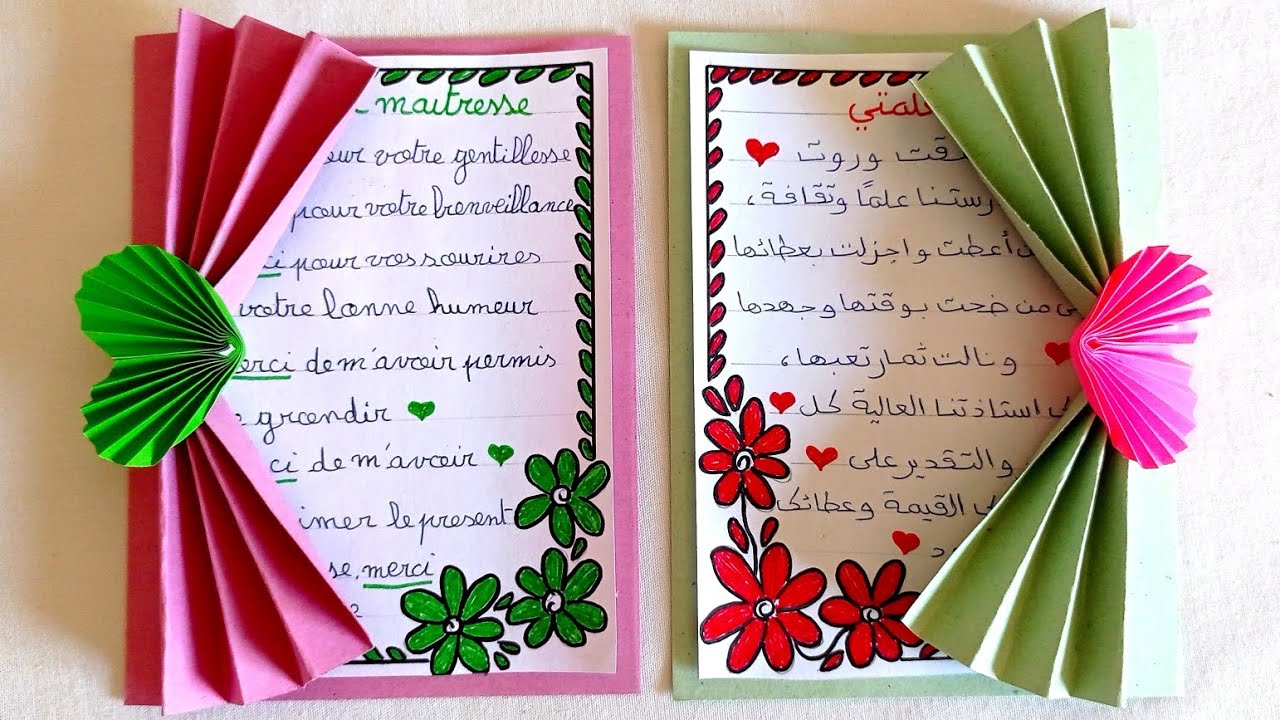 maitresse
votre gentillesse
pour votre bienveillance
pour vos sourires
votre bonne humeur
merci de m'avoir permis
grandir
de m'avoir
le present
merci
وروت
علمًا وثقافة،
أعطت واجزلت بعطائها
من ضحت بوقتها وجهدها
ونالت ثمار تعبها،
استاذتنا الغالية كل
والتقدير على
القيمة وعطائك